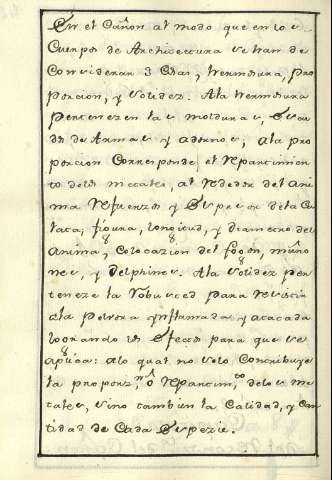 En el Cañon al modo que en los
Cuerpos de Architectura se han de
Considerar 3 Cosas, hermosura, pro
porcion, y solidez. A la hermosura
pertenezen las molduras, Escu
dos de Armas y adornos, a la pro
porcion Corresponde el repartimien
to delos metales, al rededor del ani
ma refuerzos y Espesor de la Cu
lata, figura, longitud, y diametro del
anima, Colocazion del fogon, muño
nes, y delphines. A la solidez per
tenece la robustez para resistir
ala polvora ynflamada y atacada
logrando el Efecto para que se
aplica: alo qual no solo Contribuye
la proporz.ⁿ ô repartim.ᵗᵒ delos me
tales, sino tambien la Calidad, y Can
tidad de Cada Espezie.